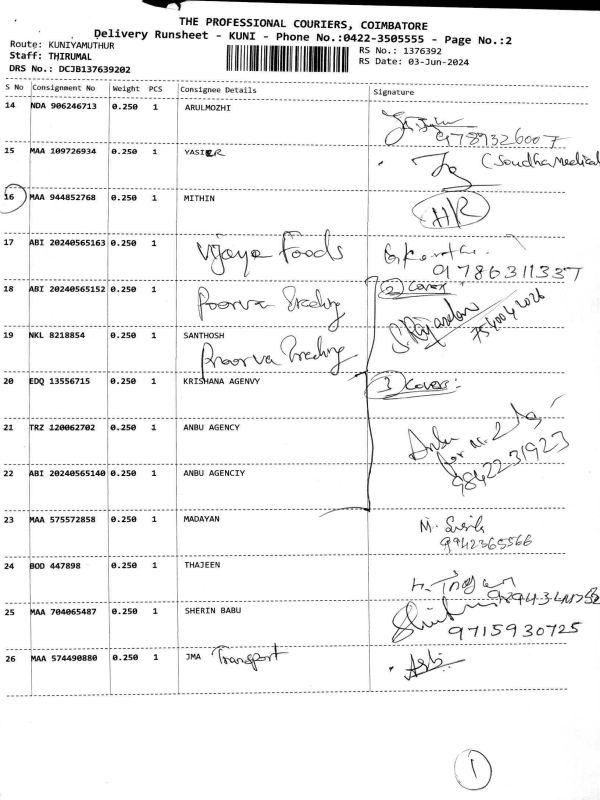 THE PROFESSIONAL COURIERS, COIMBATORE
Delivery Runsheet - KUNI - Phone No.:0422-3505555 - Page No.:2
Route: KUNIYAMUTHUR
RS No.: 1376392
Staff: THIRUMAL
RS Date: 03-Jun-2024
DRS No.: DCJB137639202
S No Consignment No Weight PCS Consignee Details Signature
14 NDA 906246713 0.250 1 ARULMOZHI
9789326007
15 MAA 109726934 0.250 1 YASIER (Soudha Medical
16 MAA 944852768 0.250 1 MITHIN HR
17 ABI 20240565163 0.250 1 Vijaya Foods
01786311337
18 ABI 20240565152 0.250 1 Poorva Trading (2) Cover
7540042026
19 NKL 8218854 0.250 1 SANTHOSH
Poorva Trading
20 EDQ 13556715 0.250 1 KRISHANA AGENVY (3) Cover:
21 TRZ 120062702 0.250 1 ANBU AGENCY Anbu
9842231923
22 ABI 20240565140 0.250 1 ANBU AGENCIY
23 MAA 575572858 0.250 1 MADAYAN
9942365566
24 BOD 447898 0.250 1 THAJEEN
25 MAA 704065487 0.250 1 SHERIN BABU
9715930725
26 MAA 574490880 0.250 1 JMA Transport
1